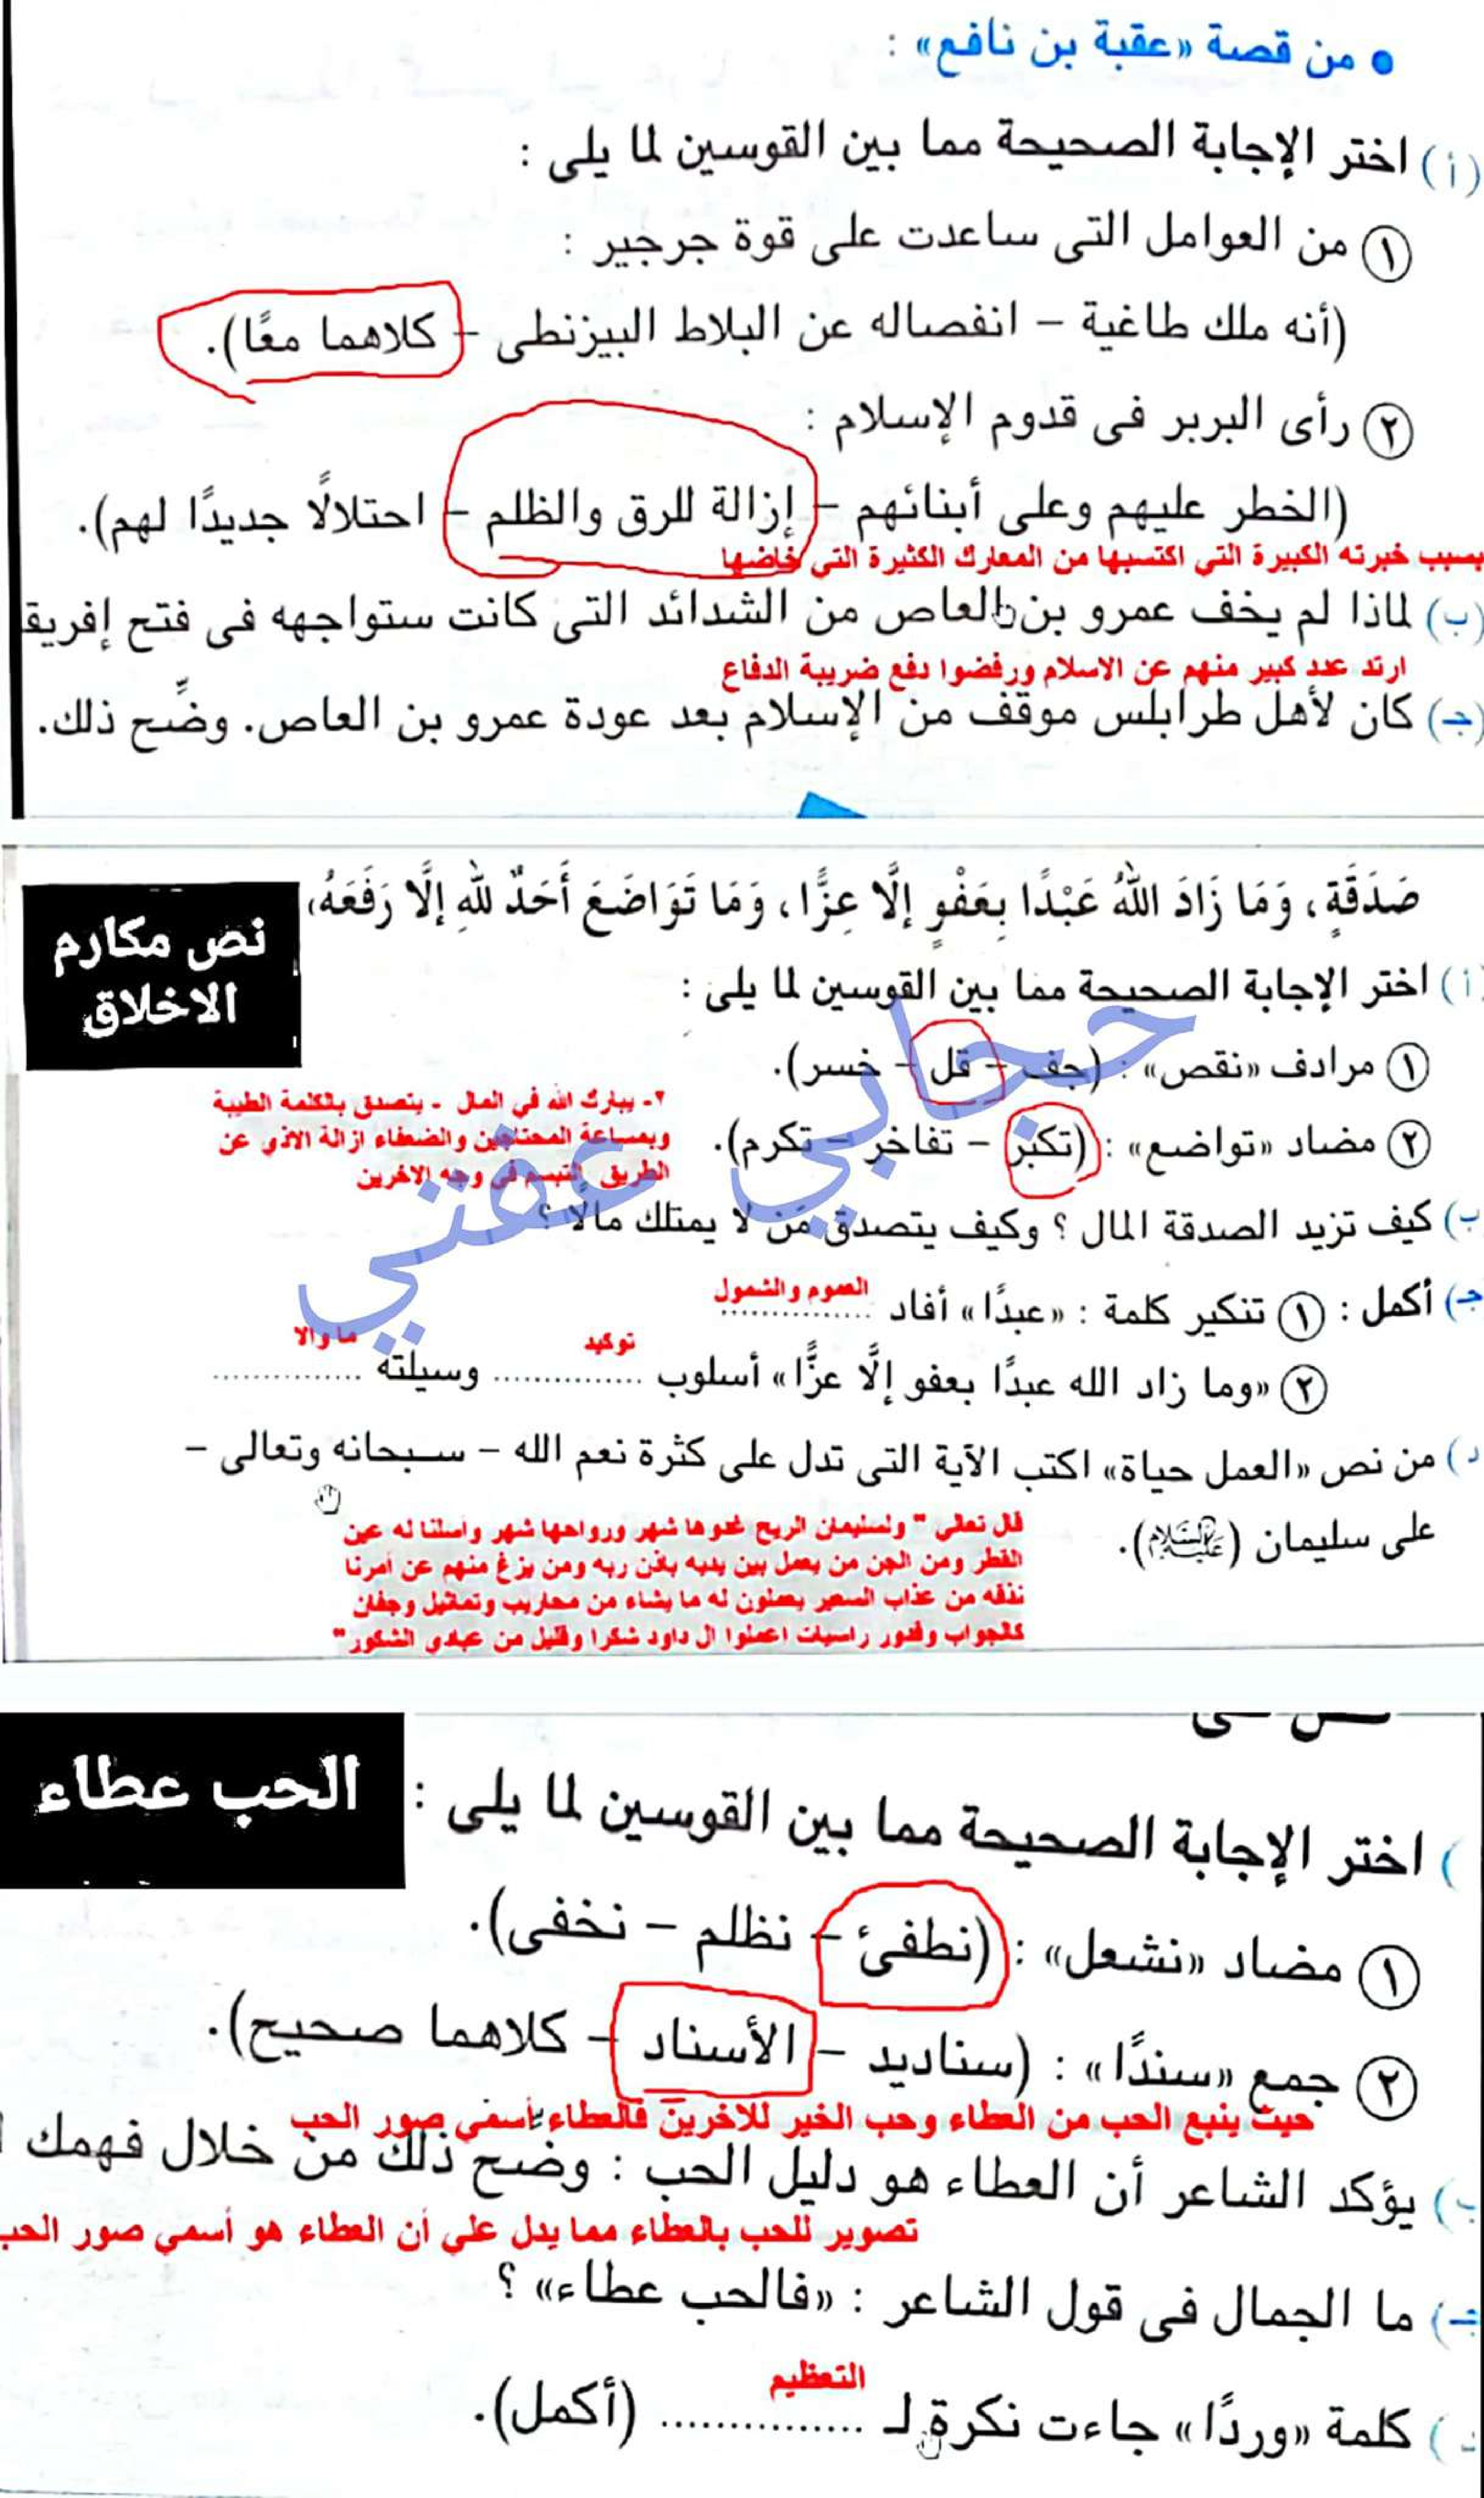 • من قصة «عقبة بن نافع» :
(أ) اختر الإجابة الصحيحة مما بين القوسين لما يلى :
١ من العوامل التى ساعدت على قوة جرجير :
(أنه ملك طاغية – انفصاله عن البلاط البيزنطى – كلاهما معًا).
٢ رأى البربر فى قدوم الإسلام :
(الخطر عليهم وعلى أبنائهم – إزالة للرق والظلم – احتلالًا جديدًا لهم).
بسبب خبرته الكبيرة التي اكتسبها من المعارك الكثيرة التي خاضها
(ب) لماذا لم يخف عمرو بن العاص من الشدائد التى كانت ستواجهه فى فتح إفريق
ارتد عدد كبير منهم عن الاسلام ورفضوا دفع ضريبة الدفاع
(جـ) كان لأهل طرابلس موقف من الإسلام بعد عودة عمرو بن العاص. وضِّح ذلك.
صَدَقَةٍ، وَمَا زَادَ اللهُ عَبْدًا بِعَفْوٍ إلَّا عِزًّا، وَمَا تَوَاضَعَ أَحَدٌ للهِ إلَّا رَفَعَهُ،
نص مكارم
الاخلاق
أ) اختر الإجابة الصحيحة مما بين القوسين لما يلى :
١ مرادف «نقص» : (جف – قل – خسر).
٢ مضاد «تواضع» : (تكبر – تفاخر – تكرم).
٢- يبارك الله في المال - يتصدق بالكلمة الطيبة
وبمساعة المحتاجين والضعفاء ازالة الاذي عن
الطريق التبسم في وجه الاخرين
حجابي عفتي
ب) كيف تزيد الصدقة المال ؟ وكيف يتصدق مَن لا يمتلك مالًا ؟
العموم والشمول
جـ) أكمل : ١ تنكير كلمة : «عبدًا» أفاد ..............
توكيد
ما والا
٢ «وما زاد الله عبدًا بعفو إلَّا عزًّا» أسلوب .............. وسيلته ..............
د) من نص «العمل حياة» اكتب الآية التى تدل على كثرة نعم الله – سبحانه وتعالى –
على سليمان (عليه السلام).
قال تعالي " ولسليمان الريح غدوها شهر ورواحها شهر واسلنا له عين
القطر ومن الجن من يعمل بين يديه باذن ربه ومن يزغ منهم عن امرنا
نذقه من عذاب السعير يعملون له ما يشاء من محاريب وتماثيل وجفان
كالجواب وقدور راسيات اعملوا ال داود شكرا وقليل من عبادي الشكور"
الحب عطاء
) اختر الإجابة الصحيحة مما بين القوسين لما يلى :
١ مضاد «نشعل» : (نطفئ – نظلم – نخفى).
٢ جمع «سندًا» : (سناديد – الأسناد – كلاهما صحيح).
حيث ينبع الحب من العطاء وحب الخير للاخرين فالعطاء أسمي صور الحب
ب) يؤكد الشاعر أن العطاء هو دليل الحب : وضح ذلك من خلال فهمك
تصوير للحب بالعطاء مما يدل علي أن العطاء هو أسمي صور الحب
جـ) ما الجمال فى قول الشاعر : «فالحب عطاء» ؟
التعظيم
د) كلمة «وردًا» جاءت نكرة لـ .............. (أكمل).